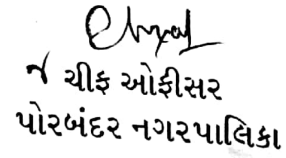 ચીફ ઓફીસર
પોરબંદર નગરપાલિકા